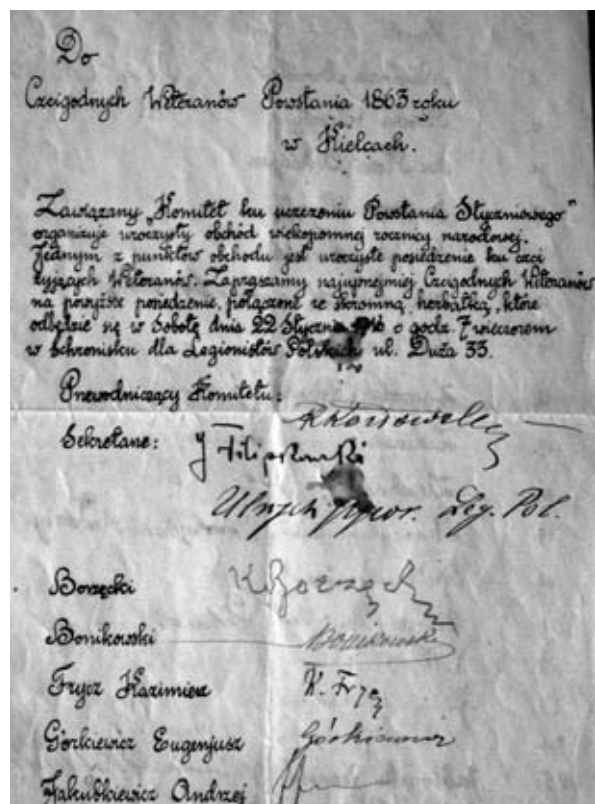 Do
Czcigodnych Weteranów Powstania 1863 roku
w Kielcach.
Zawiązany „Komitet ku uczczeniu Powstania Styczniowego"
organizuje uroczysty obchód wiekopomnej rocznicy narodowej.
Jednym z punktów obchodu jest uroczyste posiedzenie ku czci
żyjących Weteranów. Zapraszamy najuprzejmiej Czcigodnych Weteranów
na powyższe posiedzenie, połączone ze skromną herbatką, które
odbędzie się w Sobotę dnia 22 Stycznia 1916 o godz. 7 wieczorem
w Schronisku dla Legionistów Polskich ul. Duża 33.
Przewodniczący Komitetu:
Sekretarze: J Filipkowski
Ulrych Leg. Pol.
Borzęcki K Borzęcki
Bonikowski Bonikowski
Frycz Kazimierz K. Frycz
Górkiewicz Eugenjusz Górkiewicz
Jakubkiewicz Andrzej